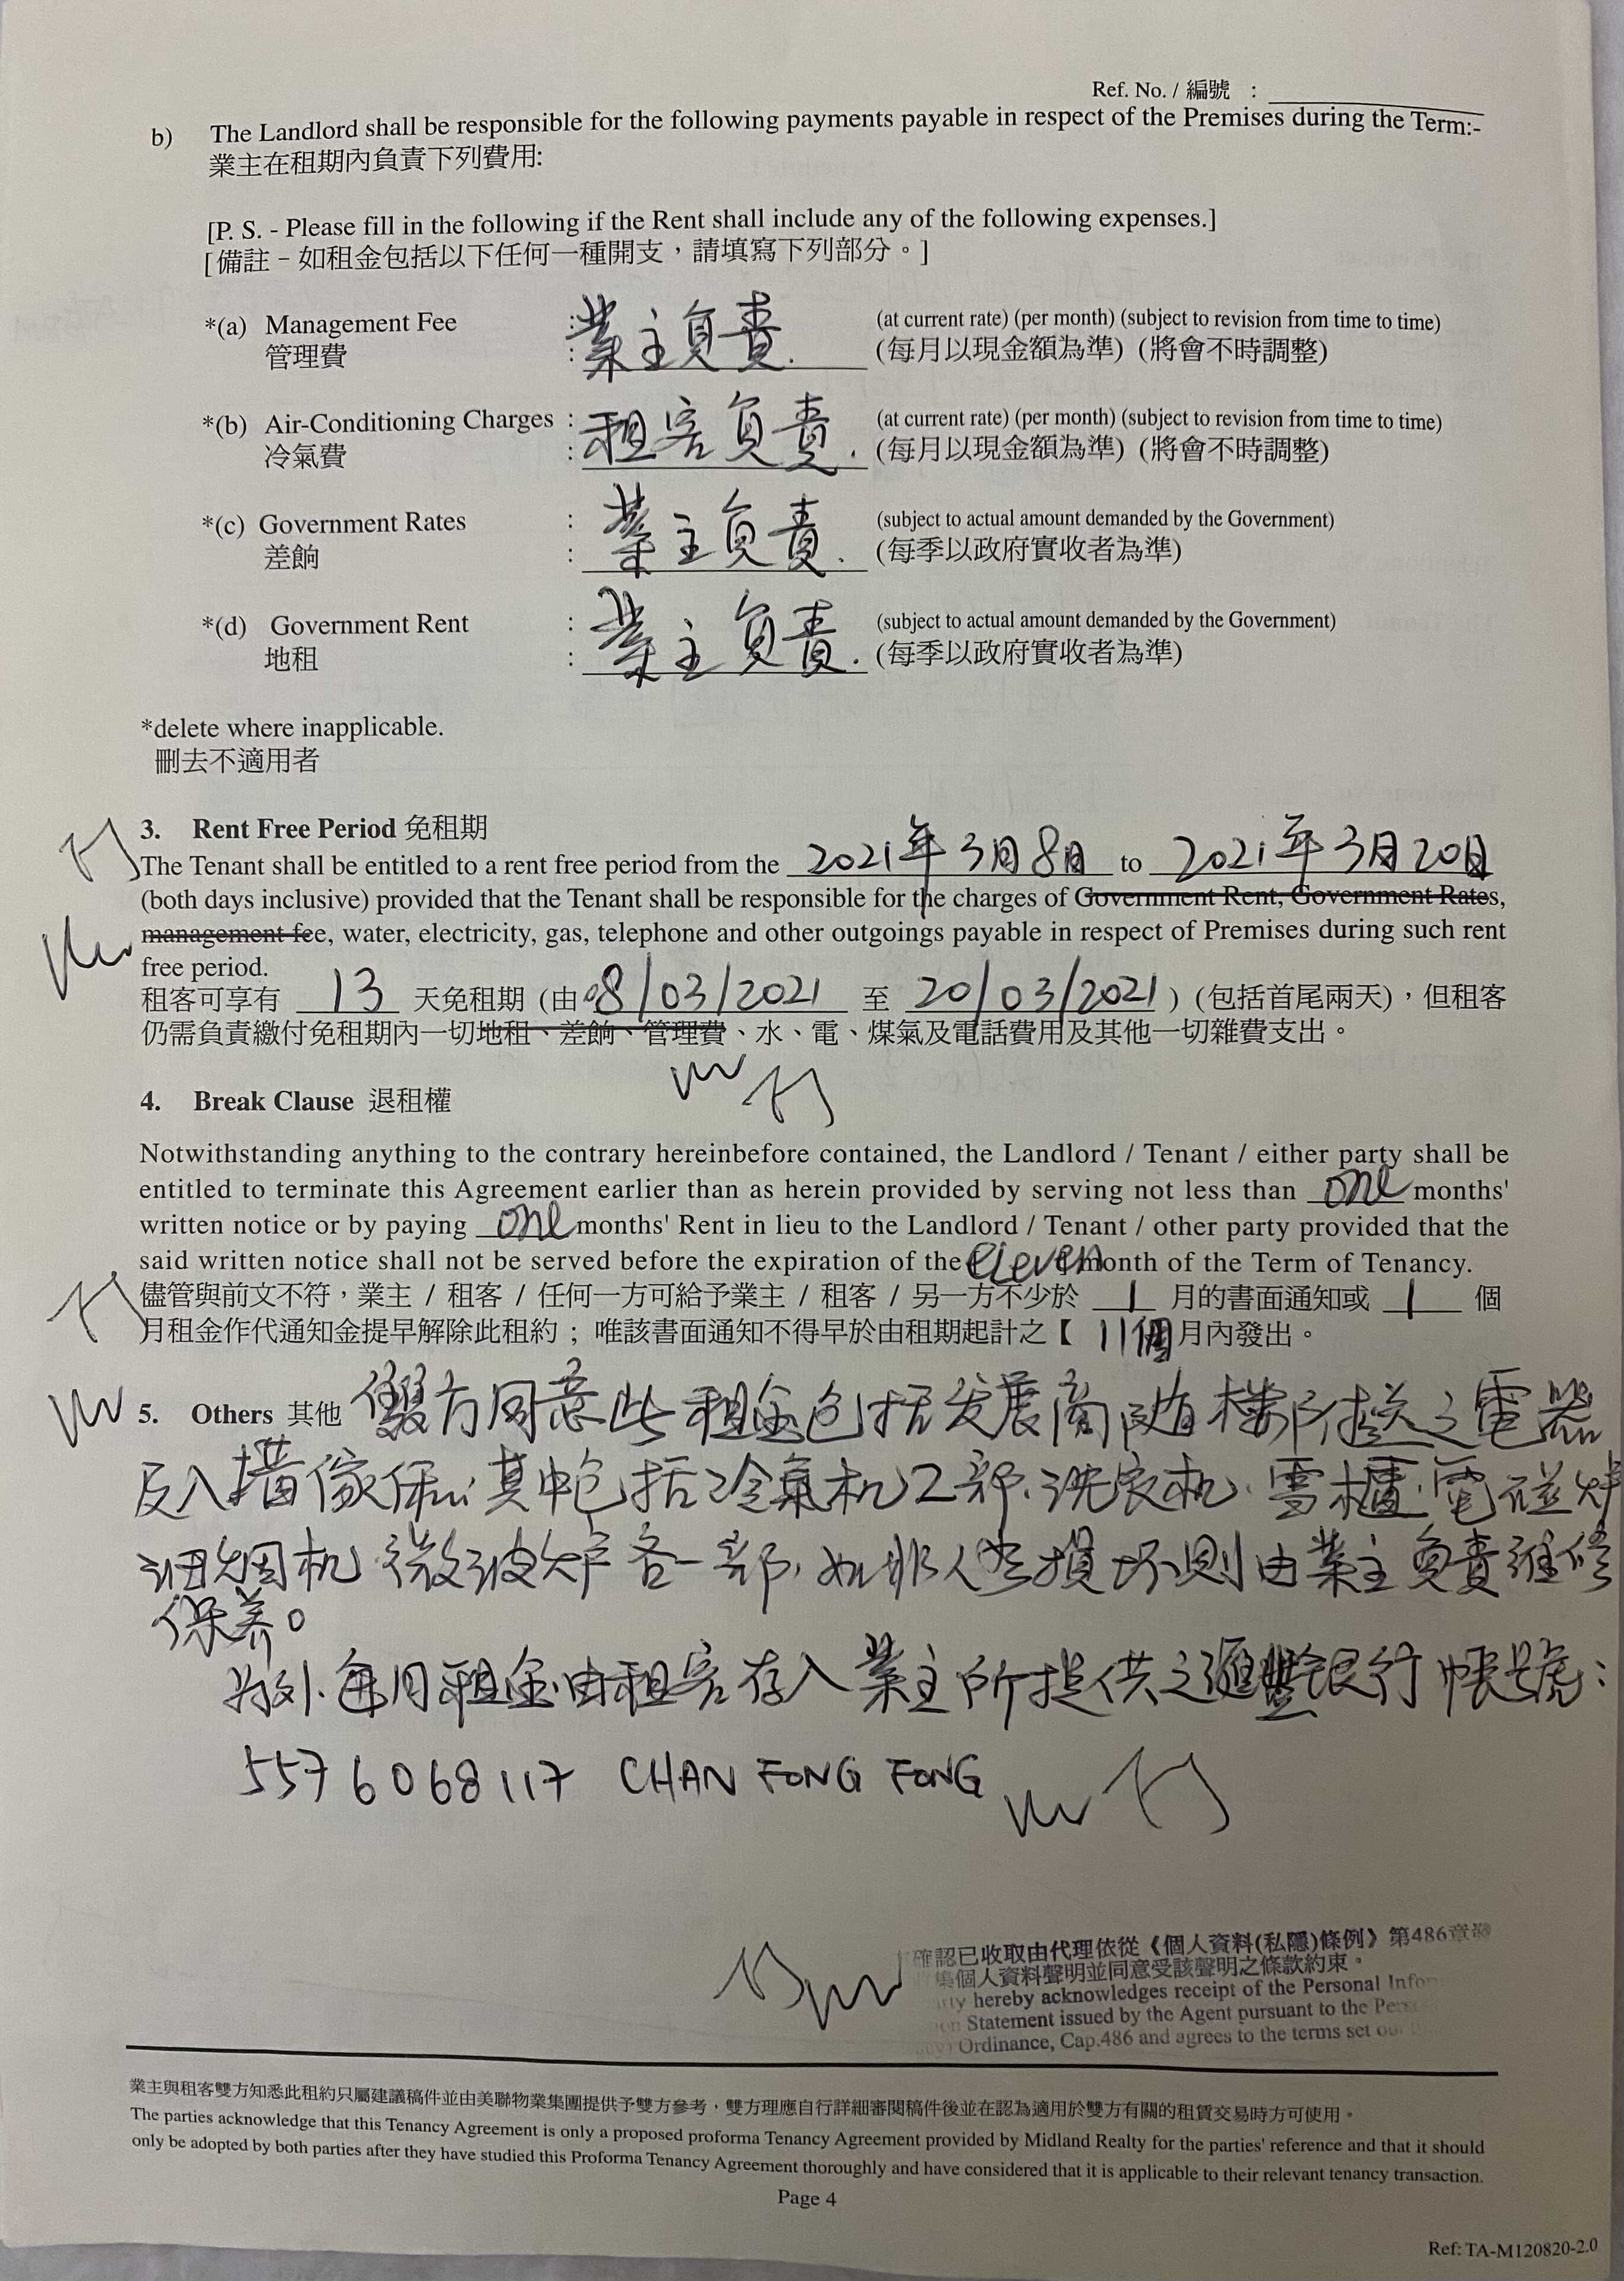 Ref. No. / 編號 :
b) The Landlord shall be responsible for the following payments payable in respect of the Premises during the Term:-
業主在租期內負責下列費用:
[P. S. - Please fill in the following if the Rent shall include any of the following expenses.]
[備註 - 如租金包括以下任何一種開支，請填寫下列部分。]
*(a) Management Fee : 業主負責. (at current rate) (per month) (subject to revision from time to time)
管理費 : (每月以現金額為準) (將會不時調整)
*(b) Air-Conditioning Charges : 租客負責. (at current rate) (per month) (subject to revision from time to time)
冷氣費 : (每月以現金額為準) (將會不時調整)
*(c) Government Rates : 業主負責. (subject to actual amount demanded by the Government)
差餉 : (每季以政府實收者為準)
*(d) Government Rent : 業主負責. (subject to actual amount demanded by the Government)
地租 : (每季以政府實收者為準)
*delete where inapplicable.
刪去不適用者
3. Rent Free Period 免租期
The Tenant shall be entitled to a rent free period from the 2021年3月8日 to 2021年3月20日
(both days inclusive) provided that the Tenant shall be responsible for the charges of Government Rent, Government Rates,
management fee, water, electricity, gas, telephone and other outgoings payable in respect of Premises during such rent
free period.
租客可享有 13 天免租期 (由 08/03/2021 至 20/03/2021 ) (包括首尾兩天)，但租客
仍需負責繳付免租期內一切地租、差餉、管理費、水、電、煤氣及電話費用及其他一切雜費支出。
4. Break Clause 退租權
Notwithstanding anything to the contrary hereinbefore contained, the Landlord / Tenant / either party shall be
entitled to terminate this Agreement earlier than as herein provided by serving not less than one months'
written notice or by paying one months' Rent in lieu to the Landlord / Tenant / other party provided that the
said written notice shall not be served before the expiration of the eleven month of the Term of Tenancy.
儘管與前文不符，業主 / 租客 / 任何一方可給予業主 / 租客 / 另一方不少於 1 月的書面通知或 1 個
月租金作代通知金提早解除此租約；唯該書面通知不得早於由租期起計之【 11個月內發出。
5. Others 其他 雙方同意此租金包括发展商随樓附送之電器
及入墻傢俬 其中包括冷氣机2部.洗衣机.雪櫃.電磁炉
烟机 微波炉各一部.如非人為損坏則由業主負責維修
保养。
另外.每月租金由租客存入業主所提供之滙豐银行帳號:
5576068117 CHAN FONG FONG
確認已收取由代理依從《個人資料(私隱)條例》第486章
集個人資料聲明並同意受該聲明之條款約束。
hereby acknowledges receipt of the Personal
Statement issued by the Agent pursuant to the
Ordinance, Cap.486 and agrees to the terms set
業主與租客雙方知悉此租約只屬建議稿件並由美聯物業集團提供予雙方參考，雙方理應自行詳細審閱稿件後並在認為適用於雙方有關的租賃交易時方可使用。
The parties acknowledge that this Tenancy Agreement is only a proposed proforma Tenancy Agreement provided by Midland Realty for the parties' reference and that it should
only be adopted by both parties after they have studied this Proforma Tenancy Agreement thoroughly and have considered that it is applicable to their relevant tenancy transaction.
Page 4
Ref: TA-M120820-2.0